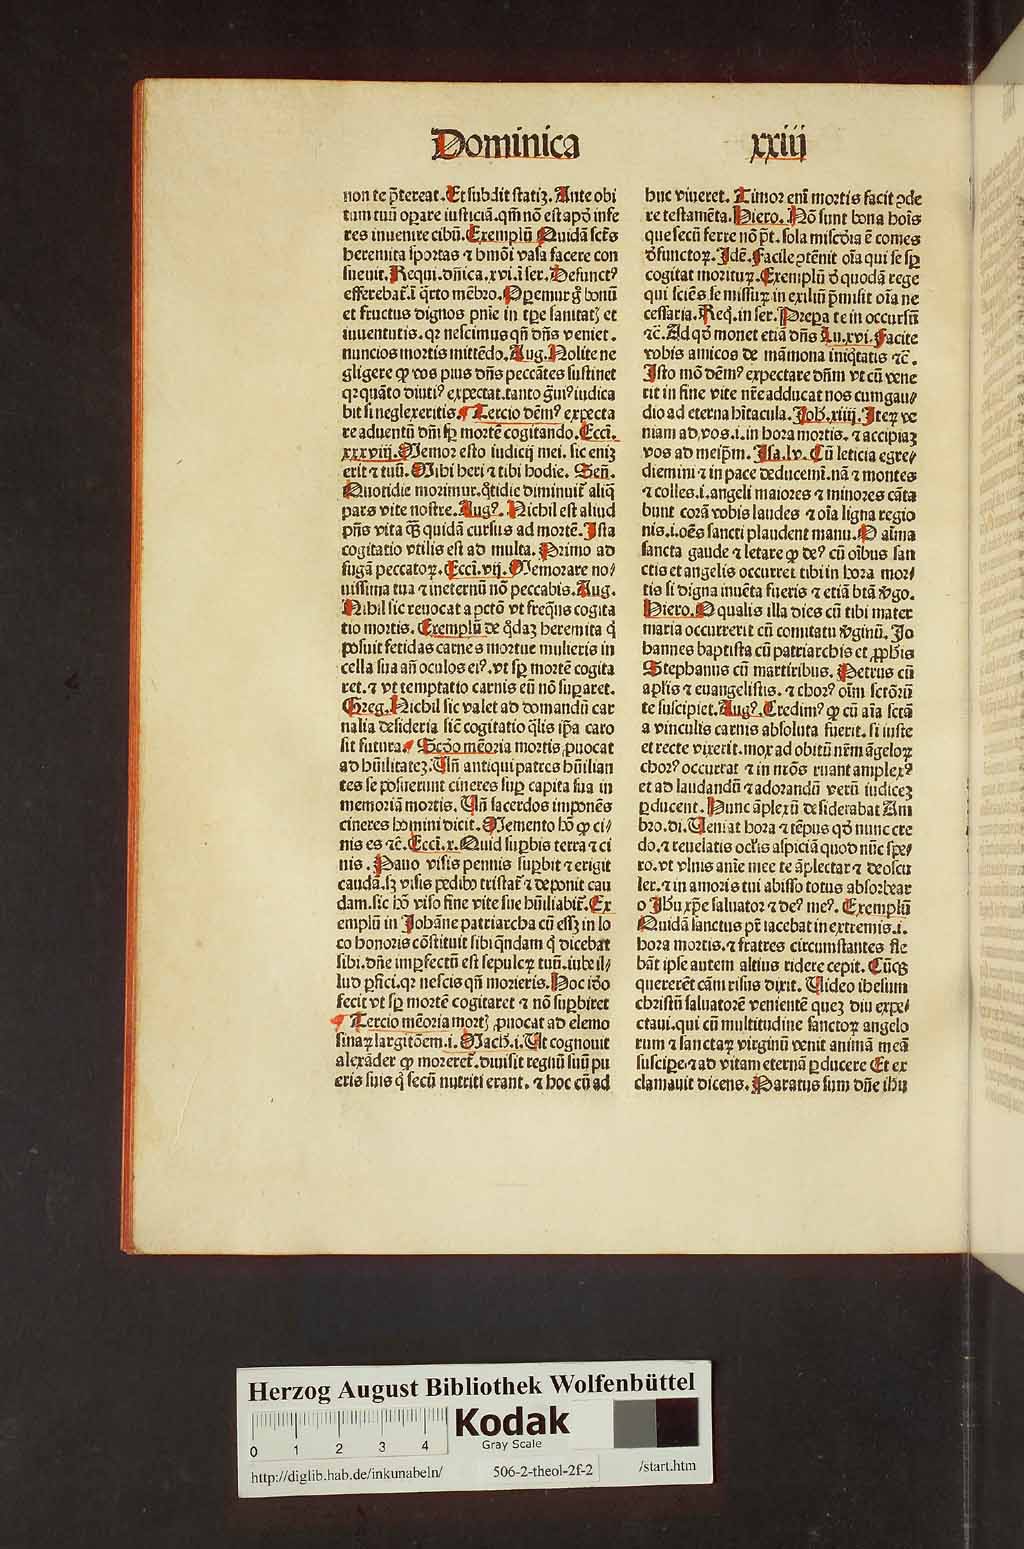 Dominica
xxiij
non te p̄tereat. Et subdit statiꝫ. Ante obi
tum tuū oꝑare iusticiā. qm̄ nō est apō infe
res inuenire cibū. Exemplū Quidā sct̄s
heremita sportas ⁊ hmōi vasa facere con
sueuit. Requi. dn̄ica. xvi. ī ser. Defunctꝰ
efferebat᷑. ī q̄rto mēbro. Oꝑemur g̊ bonū
et fructus dignos pnīe in tꝑe sanitatꝫ et
iuuentutis. qꝛ nescimus qn̄ dn̄s veniet.
nuncios mortis mittēdo. Aug. Nolite ne
gligere ꝙ vos pius dn̄s peccātes sustinet
qꝛ quāto diutiꝰ expectat. tanto g̈uiꝰ iudica
bit si neglexeritis. Tercio dēmꝰ expecta
re aduentū dn̄i sꝑ mortē cogitando. Ecci.
xxxviij. Memor esto iudicij mei. sic eniꝫ
erit ⁊ tuū. Mihi heri ⁊ tibi hodie. Sen̄.
Quotidie morimur. q̊tidie diminuit᷑ aliq̄
pars vite nostre. Augꝰ. Nichil est aliud
pn̄s vita q̄ꝫ quidā cursus ad mortē. Ista
cogitatio vtilis est ad multa. Primo ad
fugā peccatoꝝ. Ecci. vij. Memorare no⸗
uissima tua ⁊ ineternū nō peccabis. Aug.
Nihil sic reuocat a pctō vt freq̄ns cogita
tio mortis. Exemplū de q̊daꝫ heremita q̇
posuit fetidas carnes mortue mulieris in
cella sua an̄ oculos eiꝰ. vt sꝑ mortē cogita
ret. ⁊ vt temptatio carnis eū nō suꝑaret.
Greg. Nichil sic valet ad domandū car
nalia desideria sic̄ cogitatio q̄lis ip̄a caro
sit futura. Scd̊o mēoria mortis ꝓuocat
ad hūilitateꝫ. Vn̄ antiqui patres hūilian
tes se posuerunt cineres suꝑ capita sua in
memoriā mortis. Vn̄ sacerdos imponēs
cineres homini dicit. Memento hō ꝙ ci⸗
nis es ⁊c̄. Ecci. x. Quid suꝑbis terra ⁊ ci
nis. Pauo visis pennis suꝑbit ⁊ erigit
caudā. sꝫ visis pedibꝰ tristat᷑ ⁊ deponit cau
dam. sic hō viso fine vite sue hūiliabit᷑. Ex
emplū in Johāne patriarcha cū essꝫ in lo
co honoris cōstituit sibi q̄ndam q̇ dicebat
sibi. dn̄e imꝑfectū est sepulcꝝ tuū. iube il⸗
lud ꝑfici. qꝛ nescis qn̄ morieris. Hoc id̊o
fecit vt sꝑ mortē cogitaret ⁊ nō suꝑbiret
Tercio mēoria mortꝫ ꝓuocat ad elemo
sinaꝝ largitōem. i. Mach. i. Ut cognouit
alexāder ꝙ moreret᷑. diuisit regnū suū pu
eris suis q̇ secū nutriti erant. ⁊ hoc cū ad
huc viueret. Timor eni̅ mortis facit ꝯde
re testamēta. Hiero. Nō sunt bona hoīs
que secū ferre nō p̄t. sola misc̄dia ē comes
d̓functoꝝ. Idē. Facile ꝯtēnit oīa qui se sꝑ
cogitat morituꝝ. Exemplū d̓ quodā rege
qui sciēs se missuꝝ in exiliū p̄misit oīa ne
cessaria. Req̄. in ser. Prepa te in occursū
⁊c̄. Ad qd̊ monet etiā dn̄s Lu. xvi. Facite
vobis amicos de māmona iniq̇tatis ⁊c̄.
Isto mō dēmꝰ expectare dn̄m vt cū vene
rit in fine vite nr̄e adducat nos cum gau⸗
dio ad eterna hi̅tacula. Joh. xiiij. Iteꝝ ve
niam ad vos. i. in hora mortis. ⁊ accipiaꝫ
vos ad meip̄m. Isa. lv. Cū leticia egre⸗
diemini ⁊ in pace deducemi̅. nā ⁊ montes
⁊ colles. i. angeli maiores ⁊ minores cāta
bunt corā vobis laudes ⁊ oīa ligna regio
nis. i. oēs sancti plaudent manu. O ai̅ma
sancta gaude ⁊ letare ꝙ deꝰ cū oībus san
ctis et angelis occurret tibi in hora mor⸗
tis si digna inuēta fueris ⁊ etiā btā v̓go.
Hiero. O qualis illa dies cū tibi mater
maria occurrerit cū comitatu v̓ginū. Jo
hannes baptista cū patriarchis et ꝓph̄is
Stephanus cū martiribus. Petrus cū
apl̄is ⁊ euangelistis. ⁊ chorꝰ oīm sctōrū
te suscipiet. Augꝰ. Credimꝰ ꝙ cū aīa sctā
a vinculis carnis absoluta fuerit. si iuste
et recte vixerit. mox ad obitū nr̄m āgeloꝝ
chorꝰ occurrat ⁊ in nr̄os ruant amplexꝰ
et ad laudandū ⁊ adorandū verū iudiceꝫ
ꝑducent. Hunc āplexū desiderabat Am
bro. di. Veniat hora ⁊ tēpus qd̊ nunc cre
do. ⁊ reuelatis ocl̄is aspiciā quod nūc spe⸗
ro. vt vlnis anīe mee te āplectar ⁊ deoscu
ler. ⁊ in amoris tui abisso totus absorbear
o Jhu xp̄e saluator ⁊ deꝰ meꝰ. Exemplū
Quidā sanctus pr̄ iacebat in extremis. i.
hora mortis. ⁊ fratres circumstantes fle
bāt ipse autem altius ridere cepit. Cūqꝫ
quererēt cām risus dixit. Video ihesum
christū saluatorē venientē quez diu expe⸗
ctaui. qui cū multitudine sanctoꝝ angelo
rum ⁊ sanctaꝝ virginū venit animā meā
suscipe. ⁊ ad vitam eternā ꝑducere Et ex
clamauit dicens. Paratus sum dn̄e ihu
Herzog August Bibliothek Wolfenbüttel
0 1 2 3 4
Kodak
Gray Scale
http://diglib.hab.de/inkunabeln/ 506-2-theol-2f-2 /start.htm